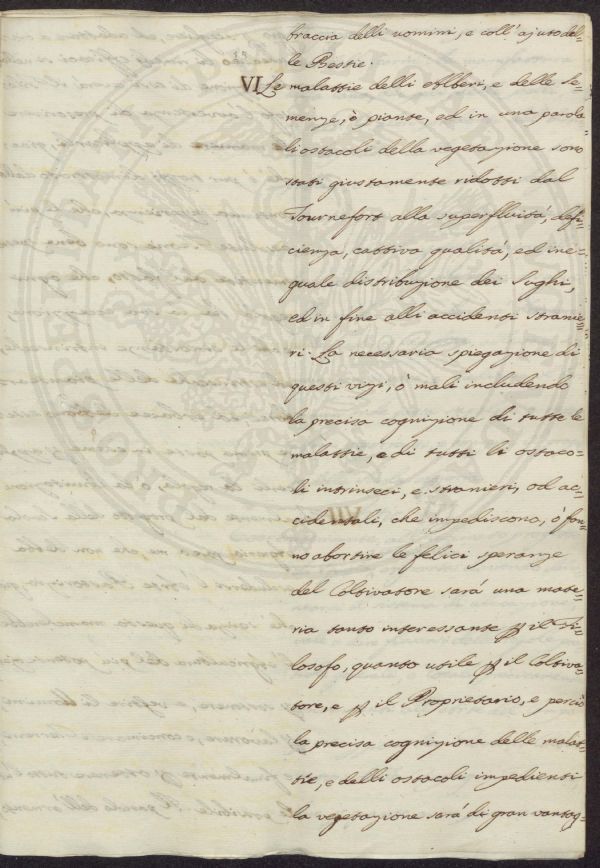 braccia delli uomini, e coll' ajuto del=
le Bestie.
VI Le malattie delli Alberi, e delle se=
menze, ò piante, ed in una parola
li ostacoli della vegetazione sono
stati giustamente ridotti dal
Tournefort alla superfluità, defi=
cienza, cattiva qualità, ed ine=
quale distribuzione dei Sughi,
ed in fine alli accidenti stranie=
ri. La necessaria spiegazione di
questi vizi, ò mali includendo
la precisa cognizione di tutte le
malattie, e di tutti li ostaco=
li intrinseci, e stranieri, od ac=
cidentali, che impediscono, ò fan=
no abortire le felici speranze
del Coltivatore sarà una mate=
ria tanto interessante p il Fi=
losofo, quanto utile p il Coltiva=
tore, e p il Proprietario, e perciò
la precisa cognizione delle malat=
tie, e delli ostacoli impedienti
la vegetazione sarà di gran vantag=